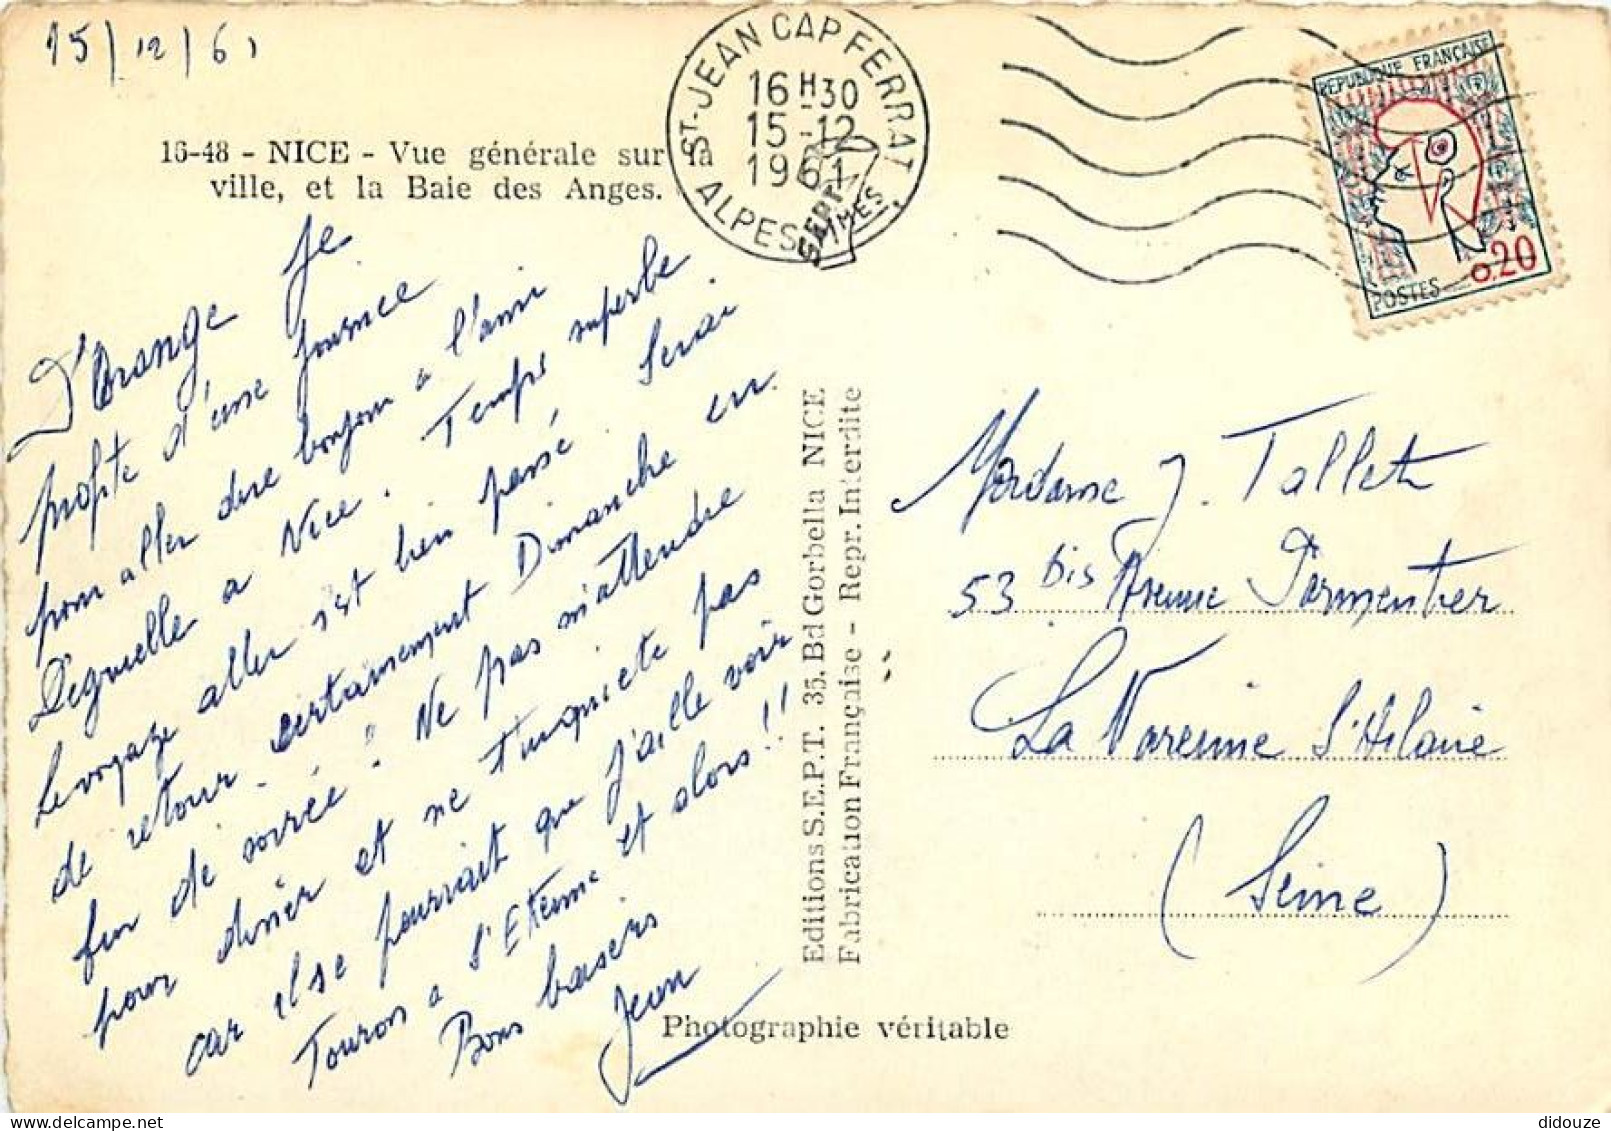 15/12/61
ST-JEAN CAP FERRAT
16H30
15-12
1961
ALPES MMES
REPUBLIQUE FRANÇAISE
POSTES
0.20
16-48 - NICE - Vue générale sur la
ville, et la Baie des Anges.
D'Orange je
profite d'une journée
pour aller dire bonjour à l'ami
à Nice. Temps superbe
Le voyage aller s'est bien passé. Serai
de retour certainement Dimanche en
fin de soirée. Ne pas m'attendre
pour diner et ne t'inquiete pas
car il se pourrait que j'aille voir
Touron a St Etienne et alors!!
Bons baisers
Jean
Editions S.E.P.T. 35. Bd Gorbella NICE
Fabrication Française - Repr. Interdite
Photographie véritable
Madame J. Tallet
53 bis Avenue Parmentier
La Varenne St Hilaire
(Seine)
didouze